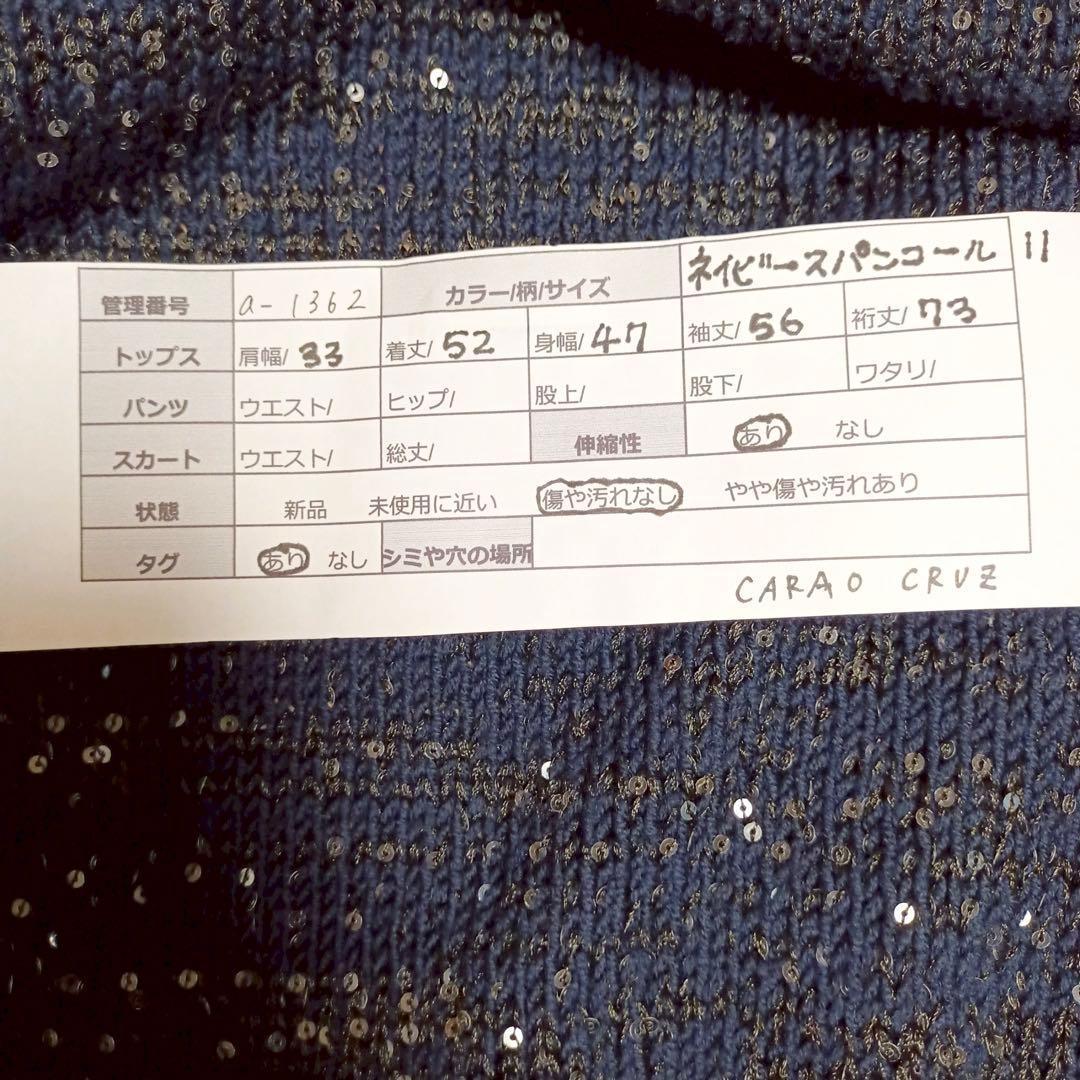 管理番号 a-1362 カラー/柄/サイズ ネイビースパンコール 11
トップス 肩幅/ 33 着丈/ 52 身幅/ 47 袖丈/ 56 裄丈/ 73
パンツ ウエスト/ ヒップ/ 股上/ 股下/ ワタリ/
スカート ウエスト/ 総丈/ 伸縮性 あり なし
状態 新品 未使用に近い 傷や汚れなし やや傷や汚れあり
タグ あり なし シミや穴の場所
CARAO CRUZ